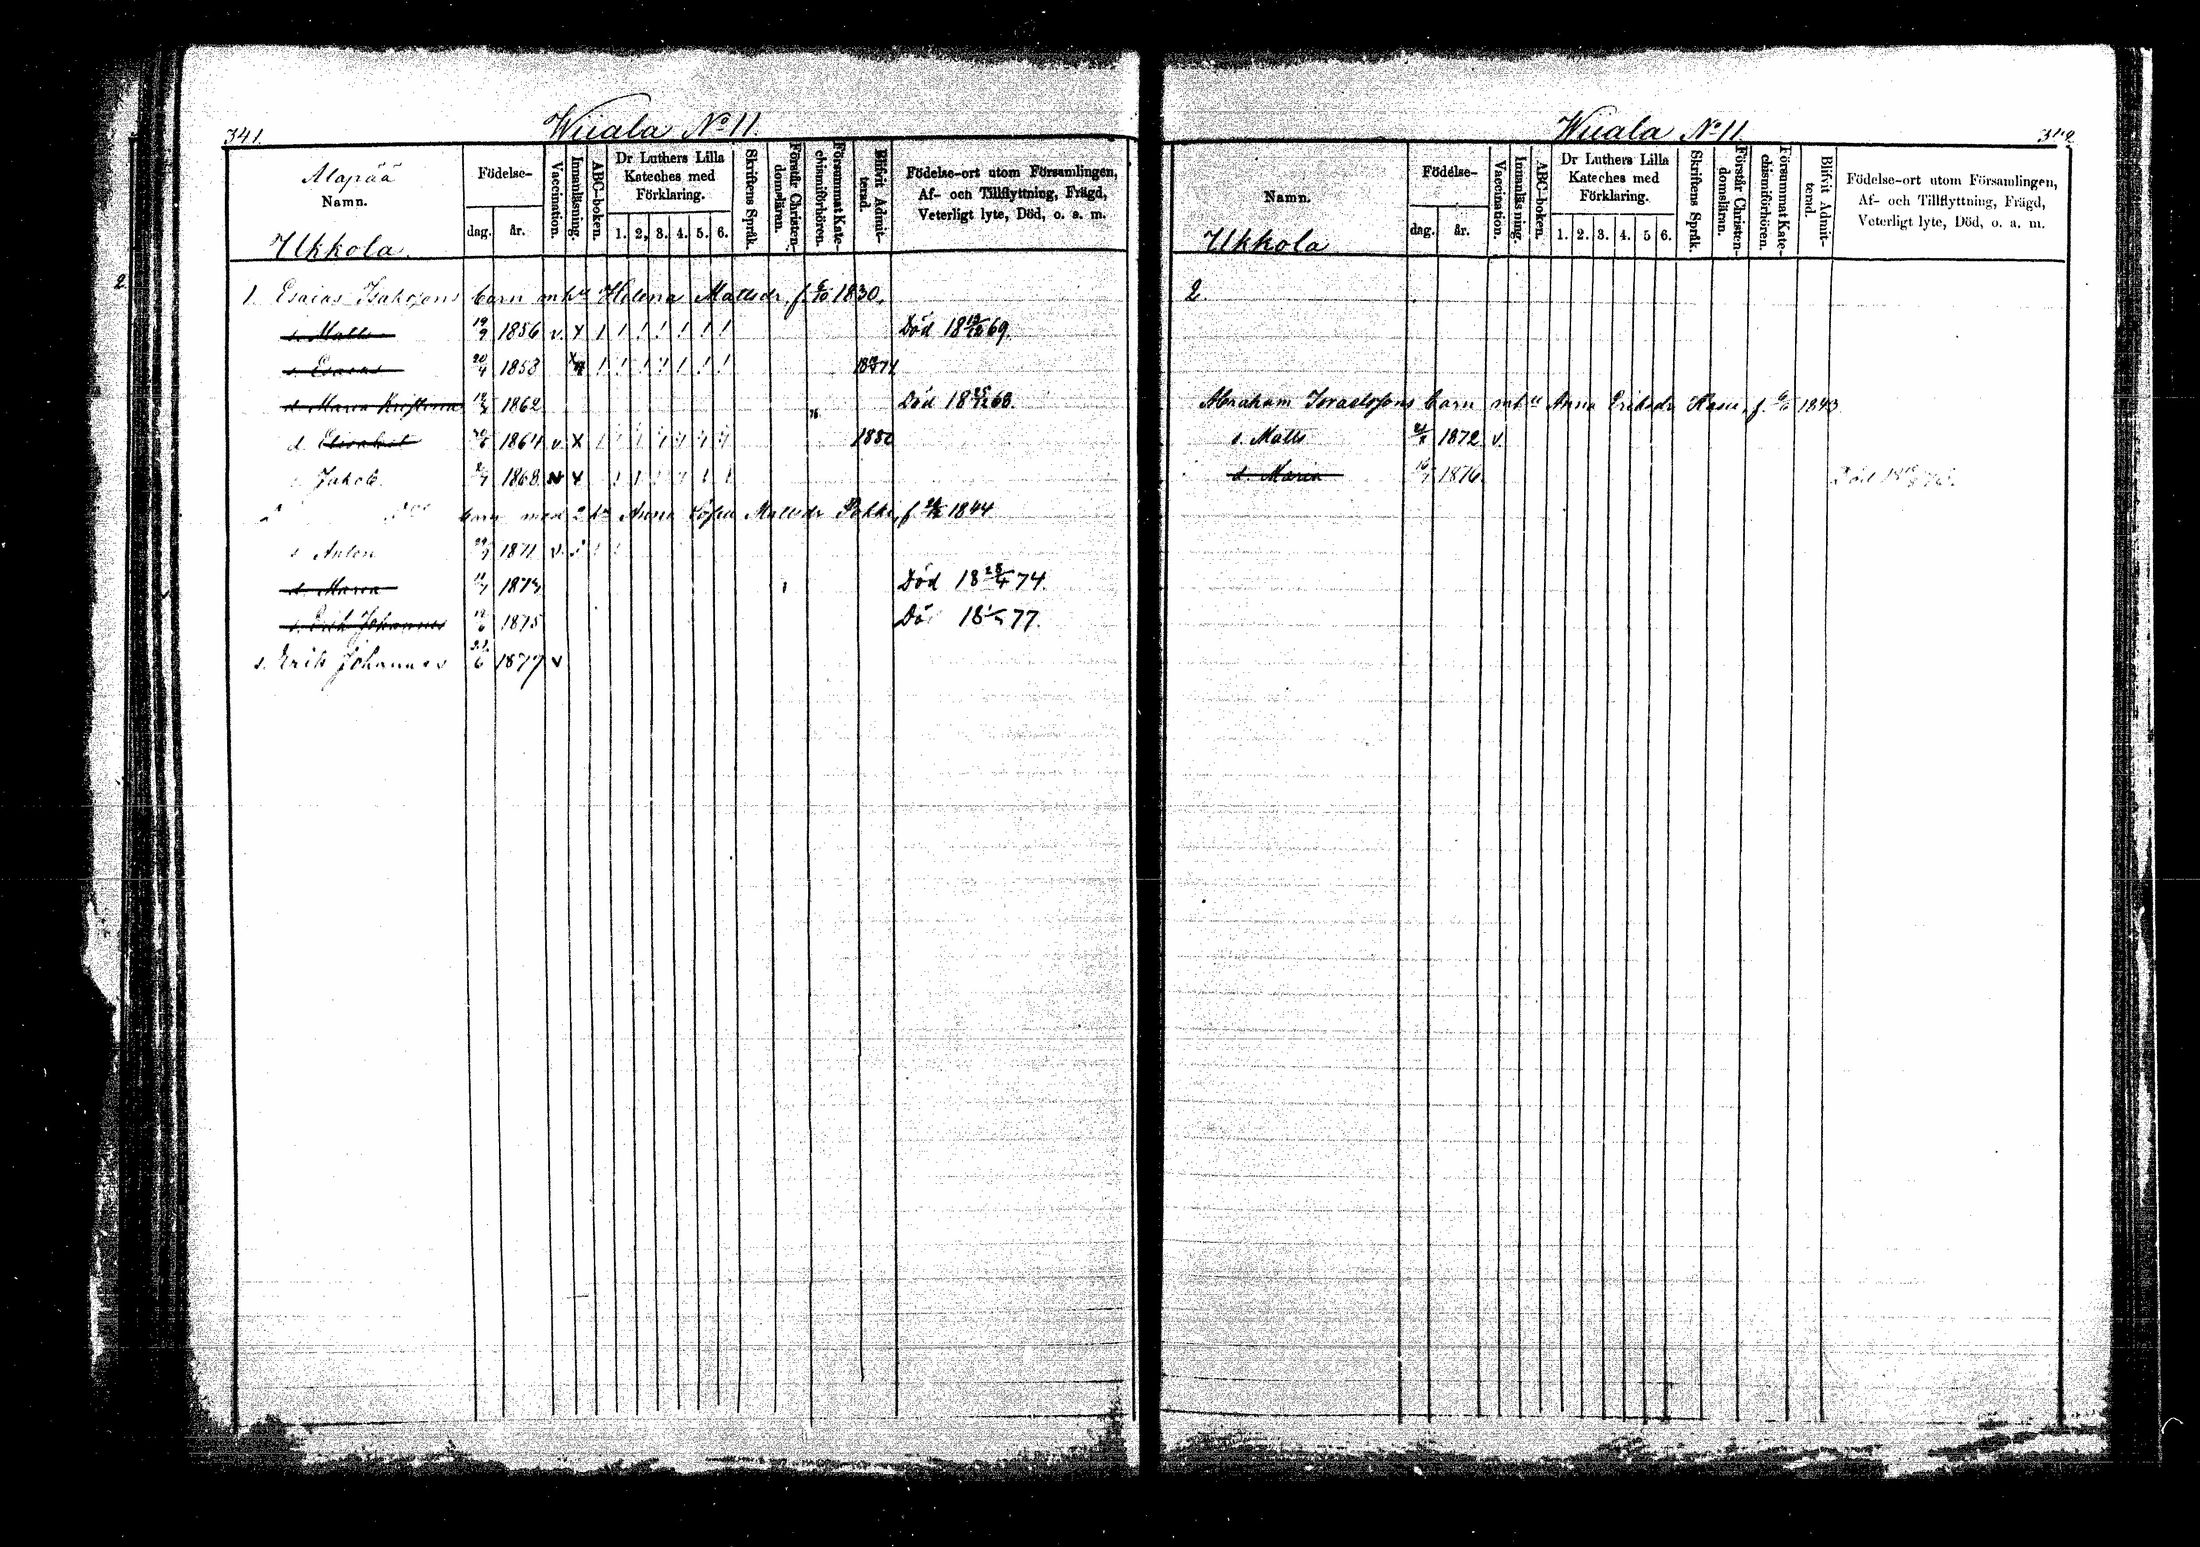 341.
Wuala No 11.
Alapää
Namn.
Ukkola.
Födelse-
dag. år.
Vaccination.
Innanläsning.
ABC-boken.
Dr Luthers Lilla
Kateches med
Förklaring.
1. 2. 3. 4. 5. 6.
Skriftens Språk.
Förstår Christen-
domsläran.
Försummat Kate-
chismiförhören.
Blifvit Admit-
terad.
Födelse-ort utom Församlingen,
Af- och Tillflyttning, Frägd,
Veterligt lyte, Död, o. a. m.
2
1. Esaias Isaksons barn m h u Helena Mattsdr, f. 1830.
s. Matts 19/9 1856 v. x 1 1 1 1 1 1 1 Död 18 69.
s. Esaias 20/4 1858 1 1 1 1 1 1 1 18 74
d. Maria Kristina 1862 Död 18 68.
d Elisabet 1864 v. x 1880
s Jakob. 1868 v x
barn med 2 h u Anna Sofia Mattsdr Pokki, f 1844
s Anton 1871 v.
d. Maria 1873 Död 18 28/4 74.
s. Erik Johannes 1875 Dö 18 77.
s. Erik Johannes 22/6 1877 v
Wuala No 11.
342
Namn.
Ukkola
Födelse-
dag. år.
Vaccination.
Innanläsning.
ABC-boken.
Dr Luthers Lilla
Kateches med
Förklaring.
1. 2. 3. 4. 5 6.
Skriftens Språk.
Förstår Christen-
domsläran.
Försummat Kate-
chismiförhören.
Blifvit Admit-
terad.
Födelse-ort utom Församlingen,
Af- och Tillflyttning, Frägd,
Veterligt lyte, Död, o. a. m.
2.
Abraham Israelsons barn m h u Anna Eriksdr Kasu, f. 1843
s. Matts 1872 v.
d. Maria 1876 Död 18 76.